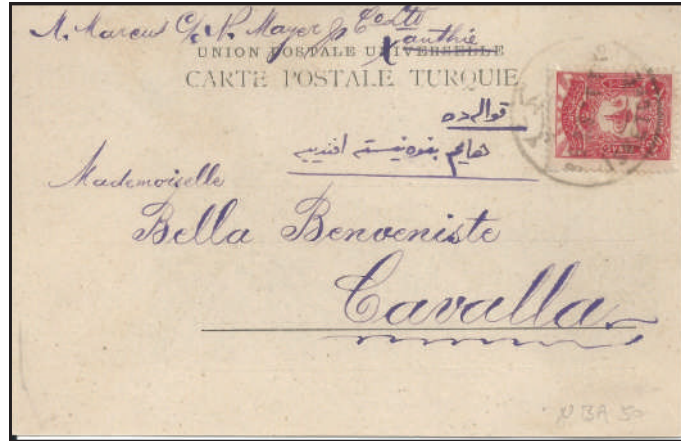 M. Marcus C/o N. Mayer & Co Ltd
Xanthie
UNION POSTALE UNIVERSELLE
CARTE POSTALE TURQUIE
قواله ده
بنونيسته افندييه
Mademoiselle
Bella Benveniste
Cavalla